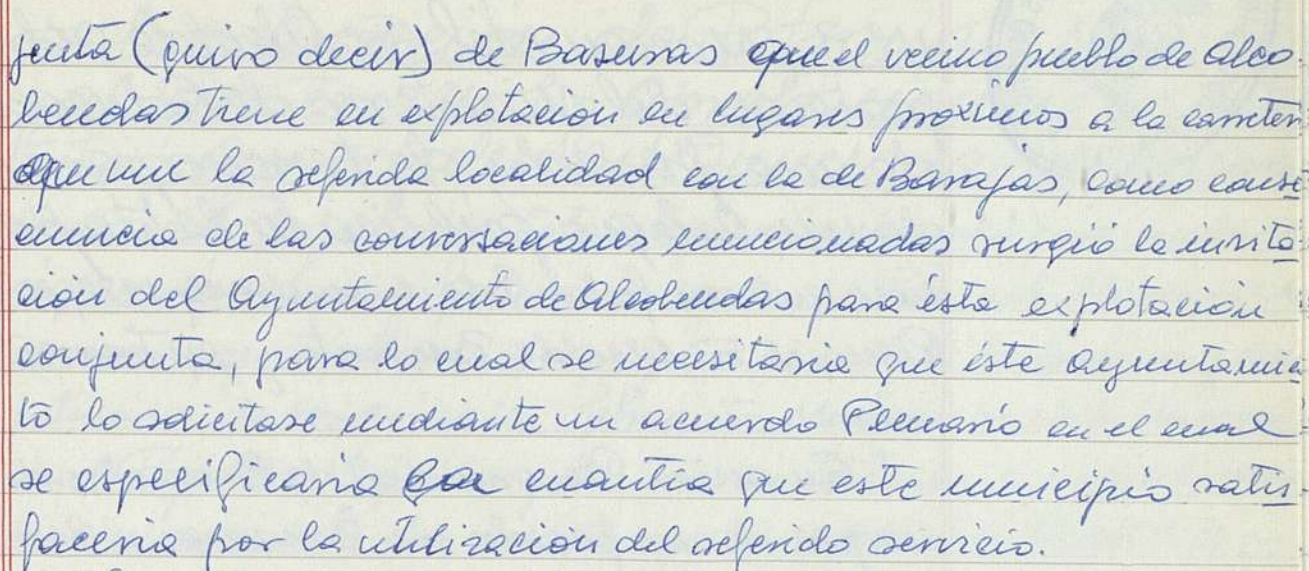 junta (quiro decir) de Basuras que el vecino pueblo de Alco
bendas tiene en explotación en lugares proximos a la carreter
que une la referida localidad con la de Barajas, como conse
cuencia de las conversaciones mencionadas surgió la invita
ción del Ayuntamiento de Alcobendas para ésta explotación
conjunta, para lo cual se necesitaria que éste Ayuntamie
to lo solicitase mediante un acuerdo Plenario en el cual
se especificaria la cuantia que este municipio satis
faceria por la utilización del referido servicio.